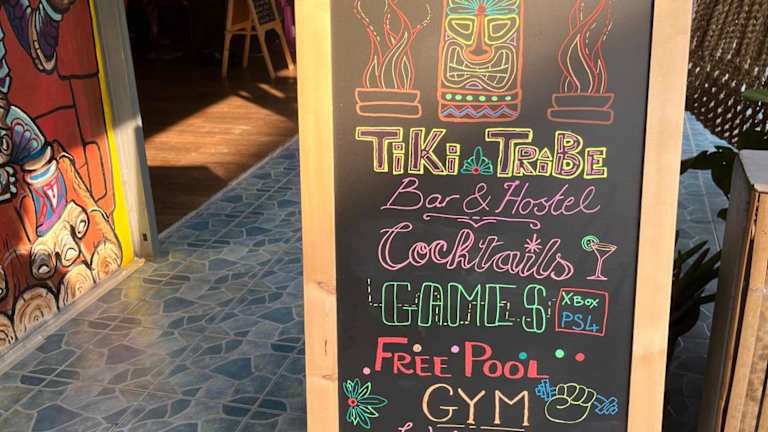 TIKI TRIBE
Bar & Hostel
Cocktails
GAMES XBOX
PS4
FREE POOL
GYM